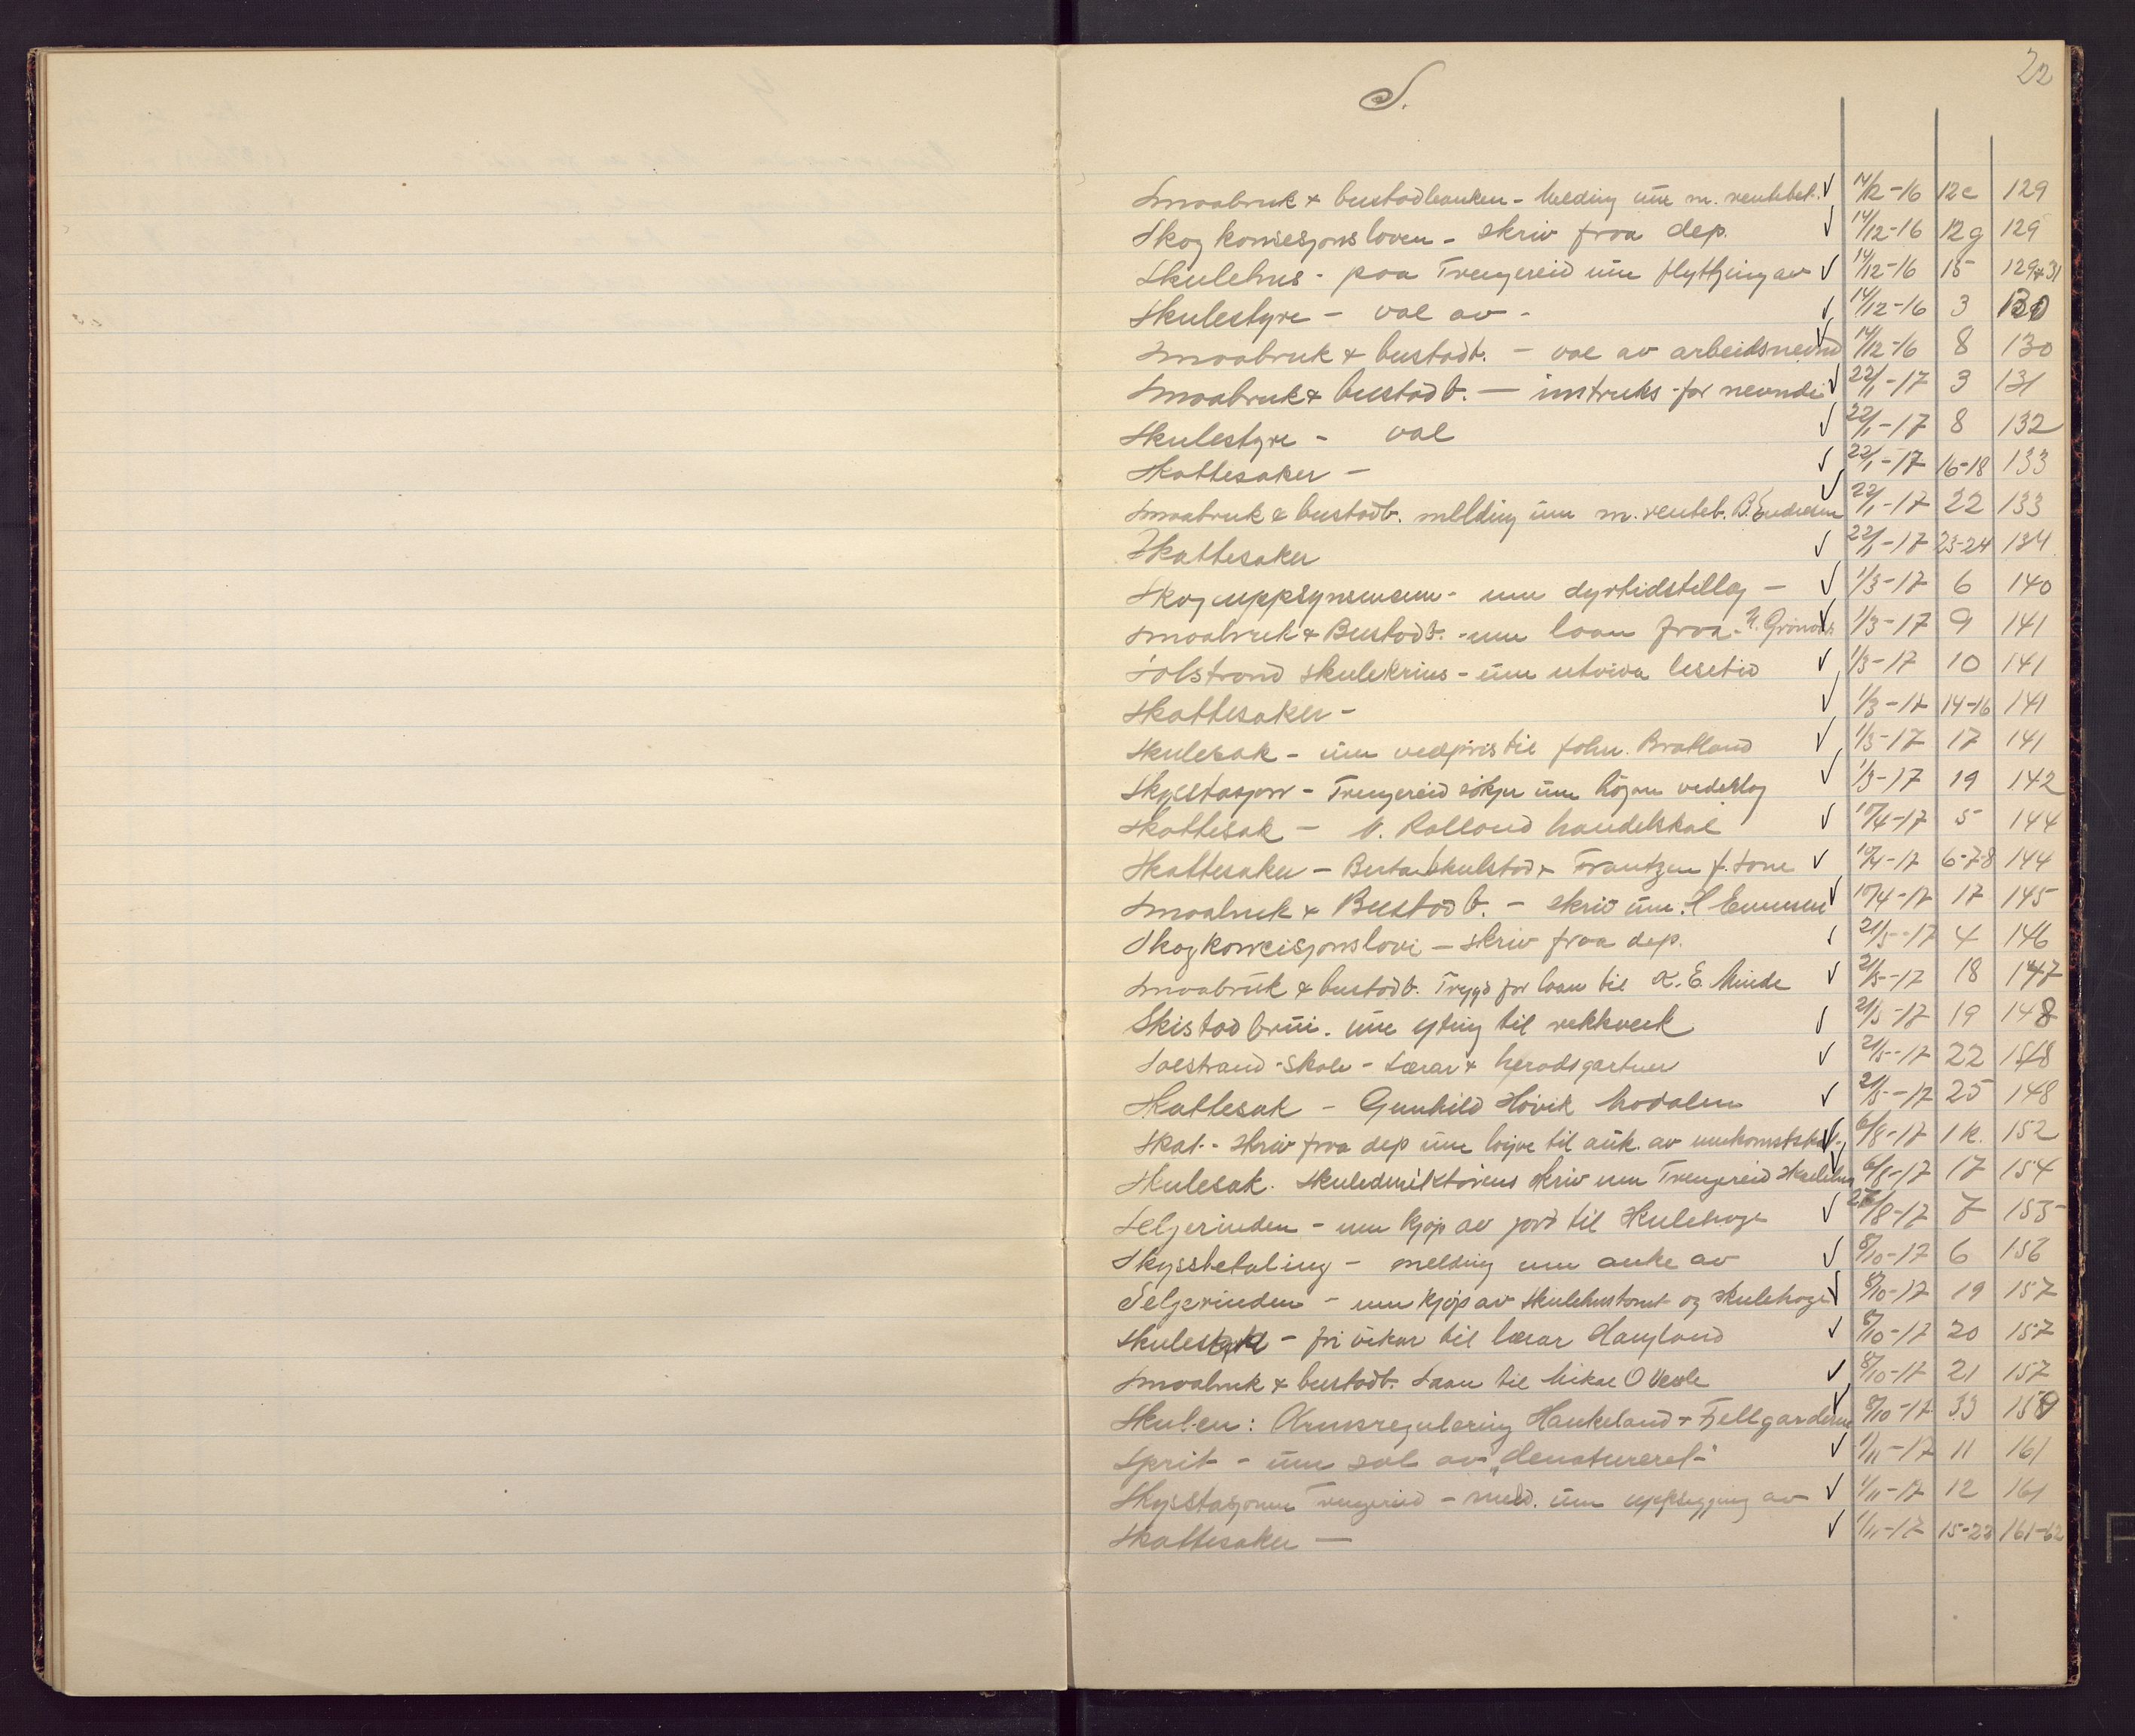 22
S.
Smaabruk & bustadbanken - Melding um m. rentebet. √ 14/12-16 12c 129
Skogkonsesjonsloven - skriv fraa dep. √ 14/12-16 12g 129
Skulehus - paa Trengereid um flytjing av √ 14/12-16 15 129+31
Skulestyre - val av - √ 14/12-16 3 130
Smaabruk & bustadb. - val av arbeidsnevnd √ 14/12-16 8 130
Smaabruk & bustadb. - instruks for nevndi √ 22/1-17 3 131
Skulestyre - val √ 22/1-17 8 132
Skattesaker - √ 22/1-17 16-18 133
Smaabruk & bustadb. melding um m. renteb. B. Endresen √ 22/1-17 22 133
Skattesaker √ 22/1-17 23-24 134
Skoguppsynsmann - um dyrtidstillag - √ 1/3-17 6 140
Smaabruk & Bustadb. - um laan fraa √ 1/3-17 9 141
Solstrand skulekrins - um utvida lesetid √ 1/3-17 10 141
Skattesaker - √ 1/3-17 14-16 141
Skulesak - um vedpris til Johs. Bratland √ 1/3-17 17 141
Skysstasjon - Trengereid søkjer um høgare vederlag √ 1/3-17 19 142
Skattesak - N. Rolland handelskal √ 10/4-17 5 144
Skattesaker - Berta Skulstad & Frantzen f. Lone √ 10/4-17 6-7-8 144
Smaabruk & Bustadb. - skriv um √ 10/4-17 17 145
Skogkonseisjonslovi - skriv fraa dep. √ 21/5-17 4 146
Smaabruk & bustadb. Trygd for laan til K. E. Minde √ 21/5-17 18 147
Skistad brui. um yting til rekkverk √ 21/5-17 19 148
Solstrand - Skole - Lærar & heradsgartner √ 21/5-17 22 148
Skattesak - Gunhild Høvik Modalen √ 21/5-17 25 148
Skat - Skriv fraa dep um løyve til auk. av √ 6/8-17 1k. 152
Skulesak. Skuledirektørens skriv um Trengereid skulehus √ 6/8-17 17 154
Seljerinden - um kjøp av jord til Skulehage √ 27/8-17 7 155
Skyssbetaling - melding um auke av √ 8/10-17 6 156
Seljerinden - um kjøp av skulehustomt og skulehage √ 8/10-17 19 157
Skulestyre - fri vikar til lærar Haugland √ 8/10-17 20 157
Smaabruk & bustadb. Laan til Mikal O Veole √ 8/10-17 21 157
Skulen: Krinsregulering Haukeland & Fjellgardane √ 8/10-17 33 159
Sprit - um sal av "denatureret" √ 1/11-17 11 161
Skysstasjonen Trengereid - meld. um uppsegjing av √ 1/11-17 12 161
Skattesaker - √ 1/11-17 15-23 161-62